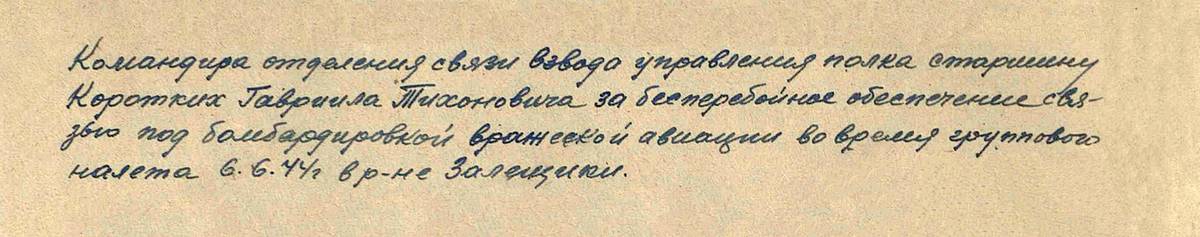 Командира отделения связи взвода управления полка старшину
Коротких Гавриила Тихоновича за бесперебойное обеспечение свя-
зью под бомбардировкой вражеской авиации во время группового
налета 6.6.44г в р-не Залещики.